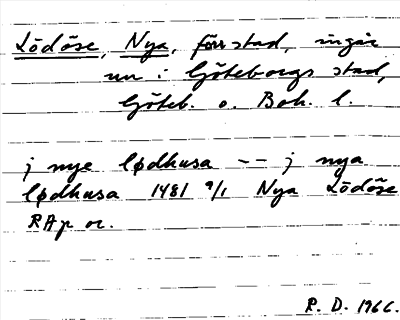 Lödöse, Nya, förr stad, ingår
nu i Göteborgs stad,
Göteb. o. Boh. l.
j nye lødhusa -- j nya
lødhusa 1481 9/1 Nya Lödöse
RAp or.
R. D. 1966.